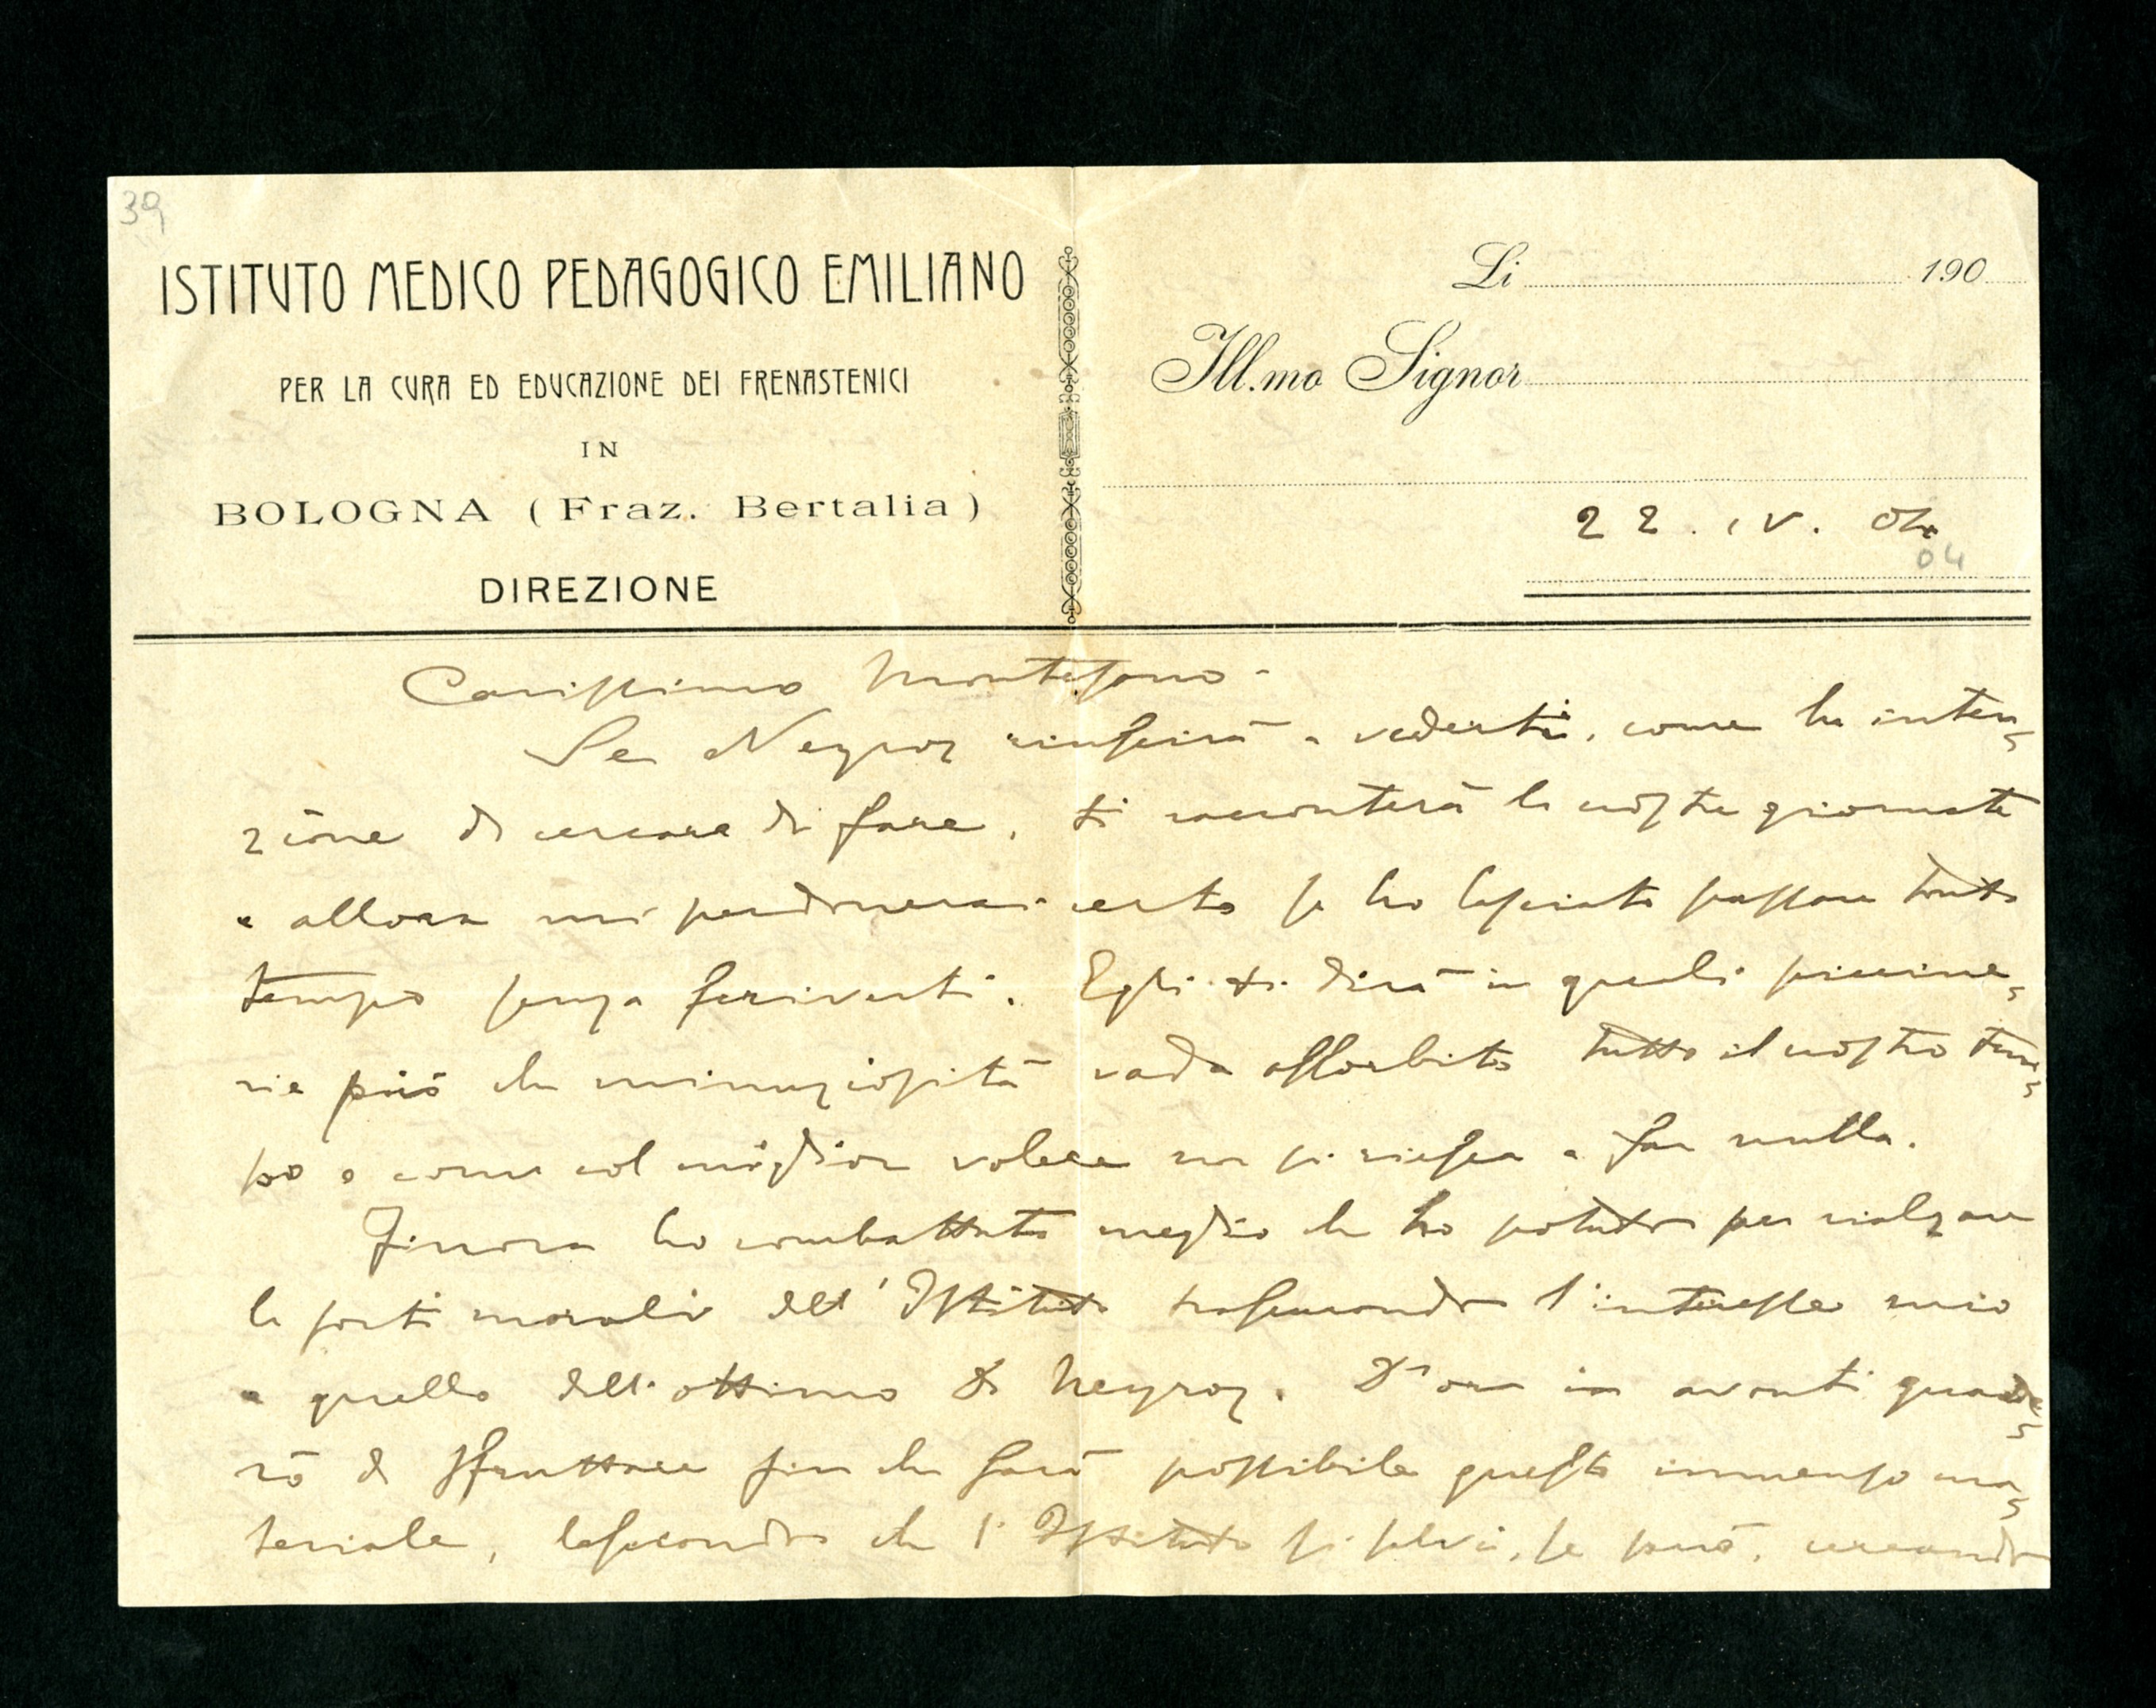 39
ISTITUTO MEDICO PEDAGOGICO EMILIANO
PER LA CURA ED EDUCAZIONE DEI FRENASTENICI
IN
BOLOGNA (Fraz. Bertalia)
DIREZIONE
Li 190
Ill.mo Signor
22. IV. 04
04
Carissimo Montesano -
Se Neyroz riuscirà a vederti, come ha inten-
zione di cercare di fare, ti racconterà le nostre giornate
e allora mi perdonerai certo se ho lasciato passare tanto
tempo senza scriverti. Egli ti dirà in quali piccine-
rie più che minuziosità vada assorbito tutto il nostro tem-
po e come col miglior volere non si riesca a far nulla.
Finora ho combattuto meglio che ho potuto per rialzare
le sorti morali dell'Istituto trascurando l'interesse mio
e quello dell'ottimo Dr Neyroz. D'ora in avanti
di sfruttare fin che sarà possibile questo immenso ma-
teriale, lasciando che l'Istituto si salvi, se può, cercando